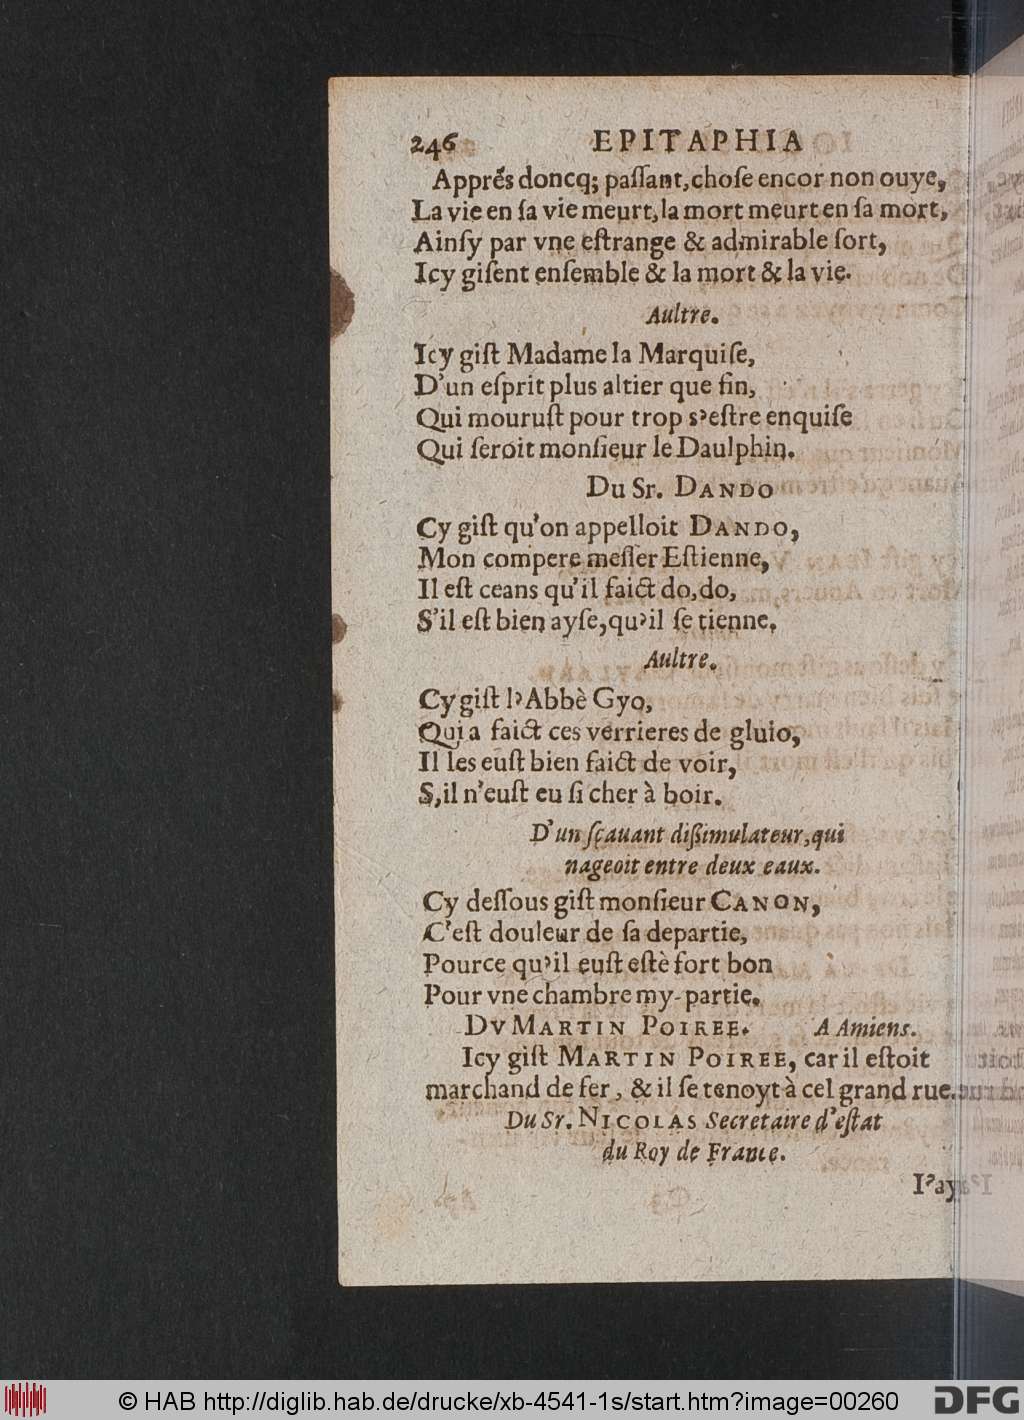 246 EPITAPHIA
Apprés doncq; paſſant, choſe encor non ouye,
La vie en ſa vie meurt, la mort meurt en ſa mort,
Ainſy par vne eſtrange & admirable ſort,
Icy giſent enſemble & la mort & la vie.
Aultre.
Icy giſt Madame la Marquiſe,
D'un eſprit plus altier que fin,
Qui mouruſt pour trop s'eſtre enquiſe
Qui ſeroit monſieur le Daulphin.
Du Sr. DANDO
Cy giſt qu'on appelloit DANDO,
Mon compere meſſer Eſtienne,
Il eſt ceans qu'il faict do, do,
S'il eſt bien ayſe, qu'il ſe tienne.
Aultre.
Cy giſt l'Abbè Gyo,
Qui a faict ces verrieres de gluio,
Il les euſt bien faict de voir,
S,il n'euſt eu ſi cher à boir.
D'un ſçauant dißimulateur, qui
nageoit entre deux eaux.
Cy deſſous giſt monſieur CANON,
C'eſt douleur de ſa departie,
Pource qu'il euſt eſtè fort bon
Pour vne chambre my-partie.
DV MARTIN POIREE. A Amiens.
Icy giſt MARTIN POIREE, car il eſtoit
marchand de fer, & il ſe tenoyt à cel grand rue.
Du Sr. NICOLAS Secretaire d'eſtat
du Roy de France.
I'ay
© HAB http://diglib.hab.de/drucke/xb-4541-1s/start.htm?image=00260 DFG